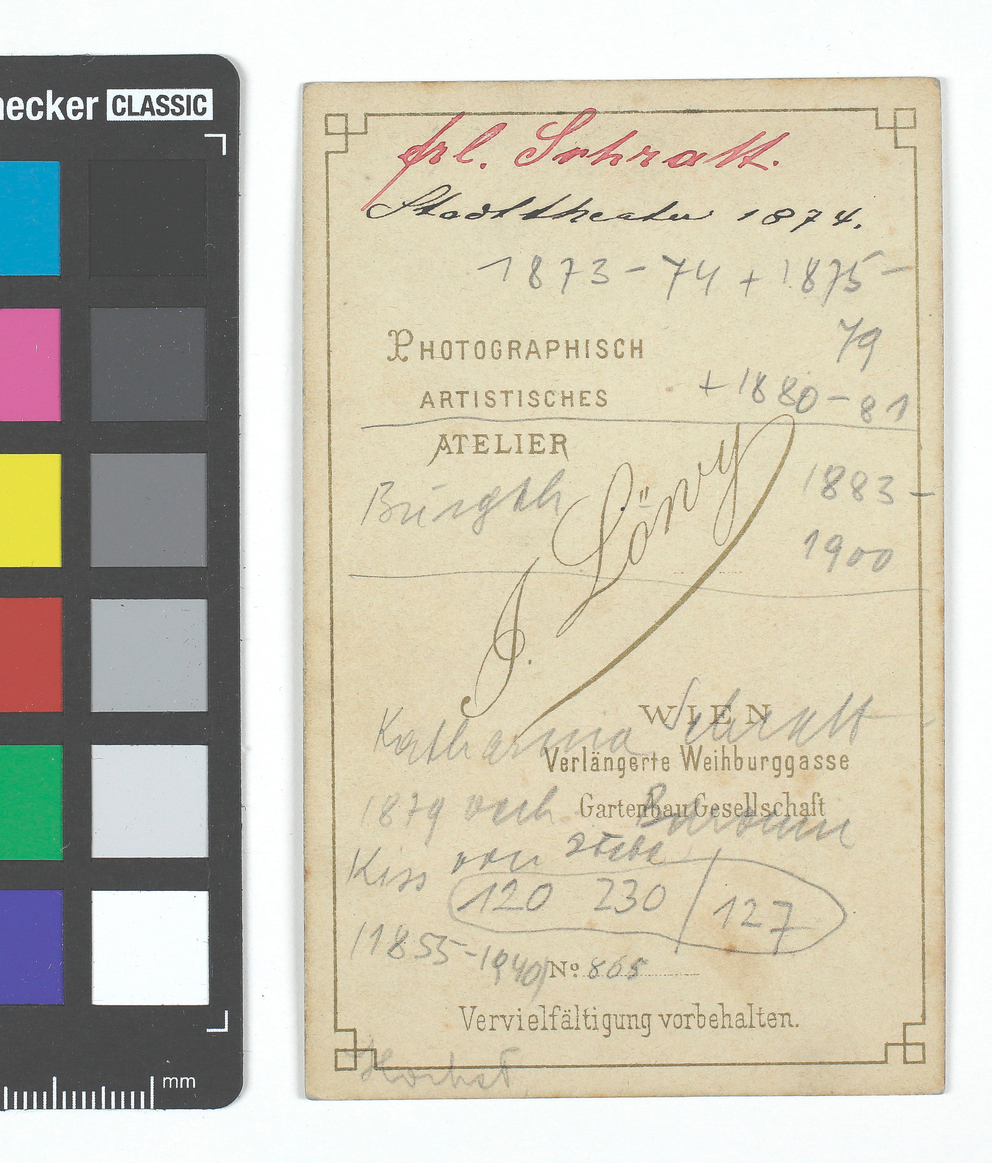 necker CLASSIC
frl. Schratt.
Stadttheater 1874.
1873-74 + 1875-
79
+ 1880-81
PHOTOGRAPHISCH
ARTISTISCHES
ATELIER
Burgth
1883-
1900
J. Löwy
WIEN
Katharina Schratt
Verlängerte Weihburggasse
1879 verh. Baronin
Gartenbau Gesellschaft
Kiss von
120 230 / 127
(1855-1940)
No 865
Vervielfältigung vorbehalten.
mm